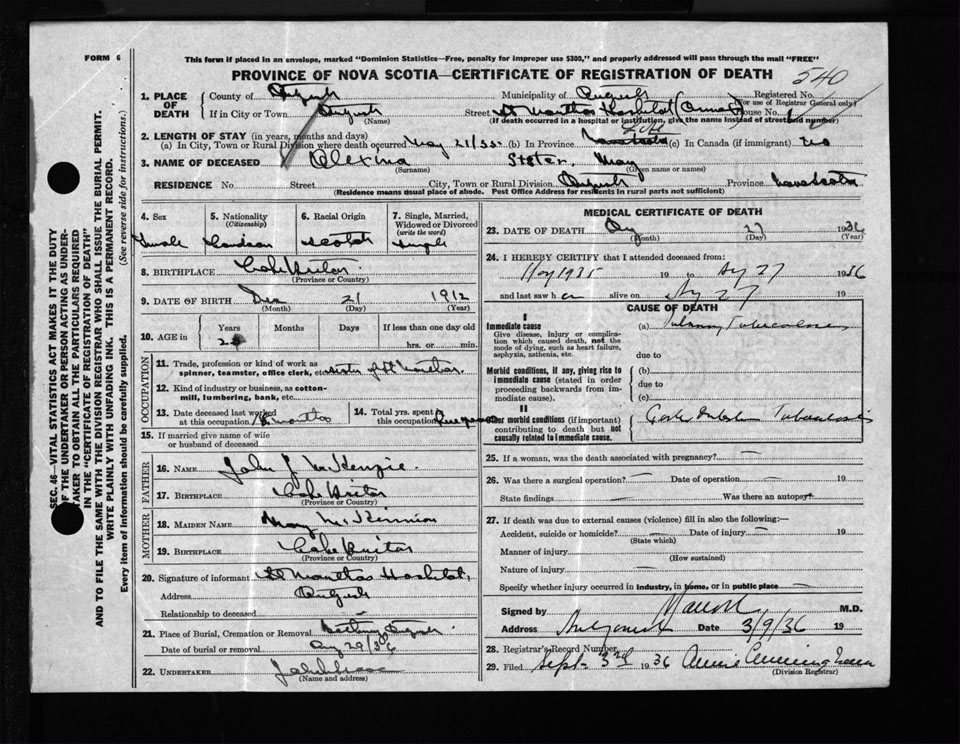 FORM 6
This form if placed in an envelope, marked "Dominion Statistics—Free, penalty for improper use $300," and properly addressed will pass through the mail "FREE"
PROVINCE OF NOVA SCOTIA—CERTIFICATE OF REGISTRATION OF DEATH
540
SEC. 46—VITAL STATISTICS ACT MAKES IT THE DUTY
OF THE UNDERTAKER OR PERSON ACTING AS UNDER-
TAKER TO OBTAIN ALL THE PARTICULARS REQUIRED
IN THE "CERTIFICATE OF REGISTRATION OF DEATH"
AND TO FILE THE SAME WITH THE DIVISION REGISTRAR WHO SHALL ISSUE THE BURIAL PERMIT.
WRITE PLAINLY WITH UNFADING INK. THIS IS A PERMANENT RECORD.
Every item of Information should be carefully supplied. (See reverse side for instructions.)
1. PLACE OF DEATH
County of Municipality of Registered No.
(For use of Registrar General only)
If in City or Town Street House No.
(Name) (If death occurred in a hospital or institution, give the name instead of street and number)
2. LENGTH OF STAY (in years, months and days) Life
(a) In City, Town or Rural Division where death occurred May 21/35 (b) In Province (c) In Canada (if immigrant)
3. NAME OF DECEASED Alexina Sister May
(Surname) (Given name or names)
RESIDENCE No. Street City, Town or Rural Division Province Nova Scotia
(Residence means usual place of abode. Post Office Address for residents in rural parts not sufficient)
4. Sex Female
5. Nationality (Citizenship) Canadian
6. Racial Origin Scotch
7. Single, Married, Widowed or Divorced (write the word) Single
8. BIRTHPLACE Cape Breton
(Province or Country)
9. DATE OF BIRTH 21 1912
(Month) (Day) (Year)
10. AGE in Years Months Days If less than one day old
hrs. or min.
OCCUPATION
11. Trade, profession or kind of work as
spinner, teamster, office clerk, etc.
12. Kind of industry or business, as cotton-
mill, lumbering, bank, etc.
13. Date deceased last worked
at this occupation
14. Total yrs. spent
this occupation
15. If married give name of wife
or husband of deceased
FATHER
16. NAME John J McKenzie
17. BIRTHPLACE Cape Breton
(Province or Country)
MOTHER
18. MAIDEN NAME Mary McKinnon
19. BIRTHPLACE Cape Breton
(Province or Country)
20. Signature of informant St Marthas Hospital
Address
Relationship to deceased
21. Place of Burial, Cremation or Removal
Date of burial or removal Aug 29/36
22. UNDERTAKER
(Name and address)
MEDICAL CERTIFICATE OF DEATH
23. DATE OF DEATH Aug 27 1936
(Month) (Day) (Year)
24. I HEREBY CERTIFY that I attended deceased from:
1935 19 to Aug 27 1936
and last saw her alive on Aug 27 19
CAUSE OF DEATH
I
Immediate cause
Give disease, injury or complica-
tion which caused death, not the
mode of dying, such as heart failure,
asphyxia, asthenia, etc.
(a) Pulmonary Tuberculosis
due to
Morbid conditions, if any, giving rise to
immediate cause (stated in order
proceeding backwards from im-
mediate cause).
(b)
due to
(c)
II
Other morbid conditions (if important)
contributing to death but not
causally related to immediate cause.
Tuberculosis
25. If a woman, was the death associated with pregnancy? —
26. Was there a surgical operation? — Date of operation —
State findings — Was there an autopsy?
27. If death was due to external causes (violence) fill in also the following:—
Accident, suicide or homicide? — Date of injury — 19
(State which)
Manner of injury
(How sustained)
Nature of injury —
Specify whether injury occurred in industry, in home, or in public place —
Signed by M.D.
Address Antigonish Date 3/9/36 19
28. Registrar's Record Number
29. Filed Sept. 3rd 1936 Annie Cunningham
(Division Registrar)